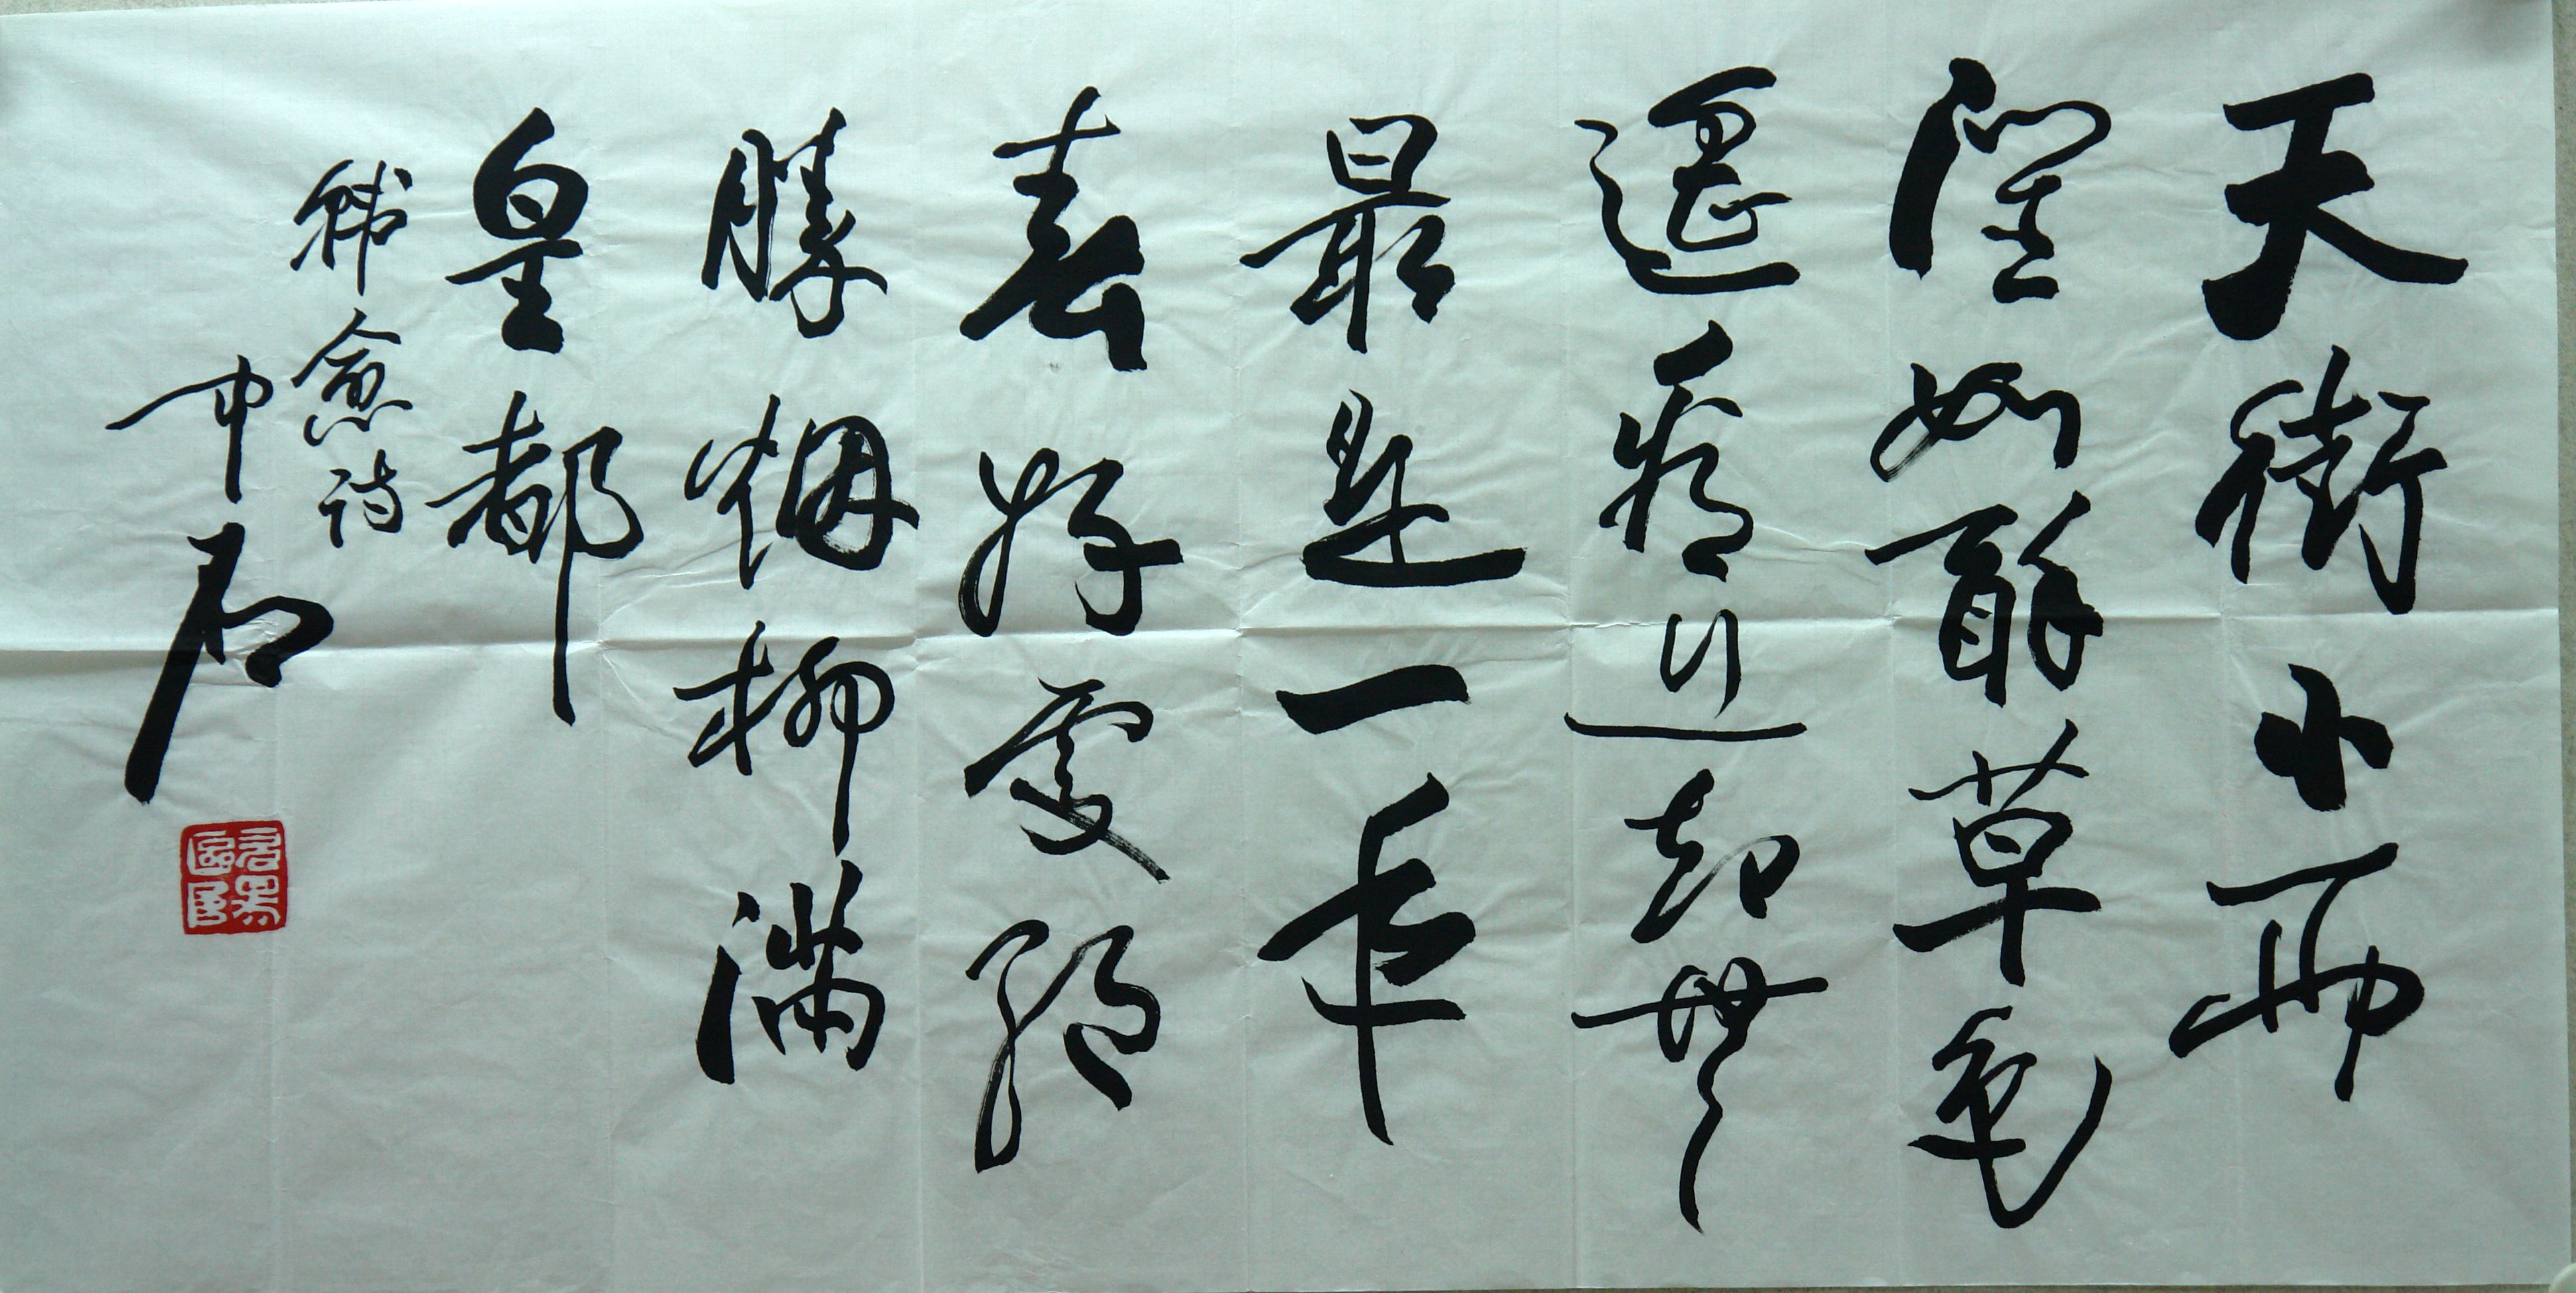 天街小雨
潤如酥草色
遥看近却無
最是一年
春好處絕
勝烟柳滿
皇都
韓愈詩
中石